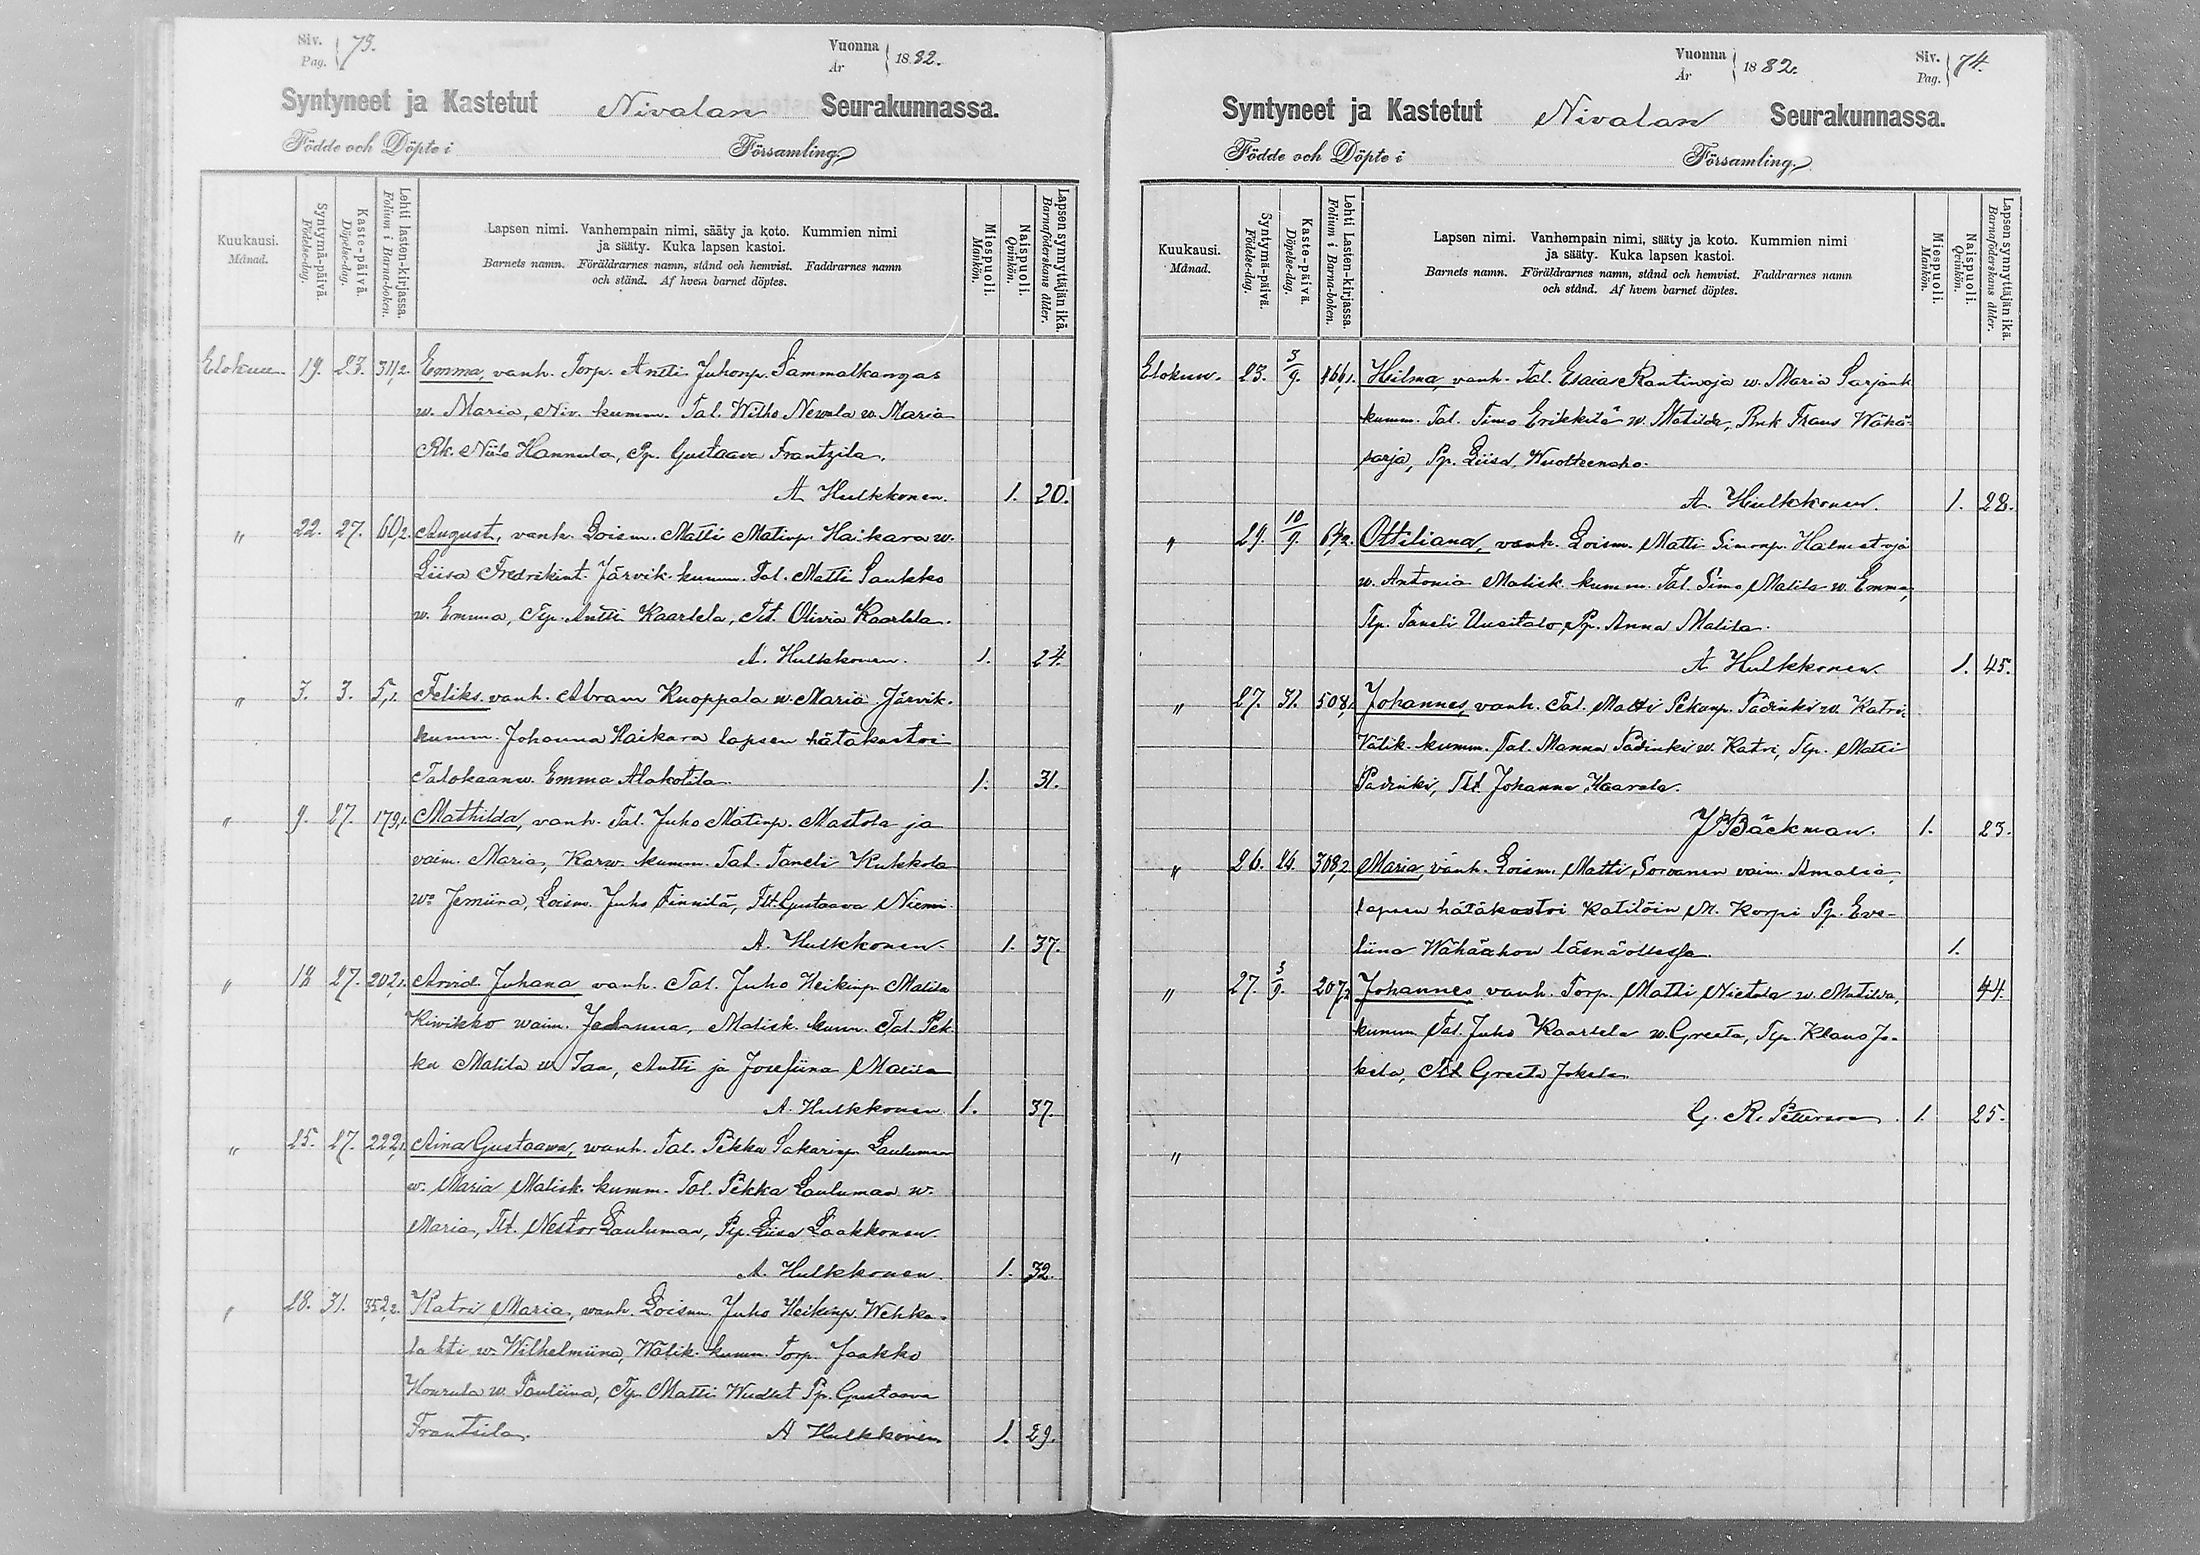 Siv. Pag. 73. Vuonna År 1882.
Syntyneet ja Kastetut Nivalan Seurakunnassa.
Födde och Döpte i Församling.
Kuukausi. Månad.
Syntymä-päivä. Födelse-dag.
Kaste-päivä. Döpelse-dag.
Lehti lasten-kirjassa. Folium i Barna-boken.
Lapsen nimi. Vanhempain nimi, sääty ja koto. Kummien nimi
ja sääty. Kuka lapsen kastoi.
Barnets namn. Föräldrarnes namn, stånd och hemvist. Faddrarnes namn
och stånd. Af hvem barnet döptes.
Miespuoli. Mankön.
Naispuoli. Qvinkön.
Lapsen synnyttäjän ikä. Barnaföderskans ålder.
Elokuu. 19. 23. 311,2. Emma, vanh. Torp. Antti Juhonp. Sammalkangas
w. Maria, Niv. kumm. Tal. Wilho Newala w. Maria
Rk. Niilo Hannula, Pp. Gustaava Frantzila.
A Hulkkonen. 1. 20.
" 22. 27. 60,2. August, vanh. Loism. Matti Matinp. Haikara w.
Liisa Fredrikint. Järvik. kumm. Tal. Matti Saukko
w. Emma, Tp. Antti Kaarlela, Tt. Olivia Kaarlela.
A. Hulkkonen. 1. 24.
" 3. 3. 5,1. Feliks. vanh. Abram Knoppala w. Maria Järvik.
kumm. Johanna Haikara lapsen hätäkastoi
Talokaanw. Emma Alakotila. 1. 31.
" 9. 27. 179,1. Mathilda, vanh. Tal. Juho Matinp. Mastola ja
vaim. Maria, Karw. kumm. Tal. Taneli Kukkola
w. Jemiina, Loism. Juho Finnilä, Tlt. Gustaava Niemi.
A. Hulkkonen. 1. 37.
" 18 27. 202,1. Arvid Juhana vanh. Tal. Juho Heikinp. Malila
Kivikko waim. Johanna, Malisk. kumm. Tal. Pek-
ka Malila w. Taa, Antti ja Josefiina Malila
A. Hulkkonen 1. 37.
" 25. 27. 222,1. Aina Gustaawa, wanh. Tal. Pekka Sakarinp. Lauluman
w. Maria Malisk. kumm. Tal. Pekka Lauluman w.
Maria, Tlt. Nestor Lauluman, Pp. Liisa Laakkonen.
A. Hulkkonen. 1. 32.
" 28. 31. 352,2. Katri Maria, vanh. Loism. Juho Heikinp. Wehka-
lahti w. Wilhelmiina, Wälik. kumm. Torp. Jaakko
w. Pauliina, Tp. Matti Pp. Gustaava
Frantsila. A Hulkkonen 1. 29.
Vuonna År 1882. Siv. Pag. 74.
Syntyneet ja Kastetut Nivalan Seurakunnassa.
Födde och Döpte i Församling.
Kuukausi. Månad.
Syntymä-päivä. Födelse-dag.
Kaste-päivä. Döpelse-dag.
Lehti Lasten-kirjassa. Folium i Barna-boken.
Lapsen nimi. Vanhempain nimi, sääty ja koto. Kummien nimi
ja sääty. Kuka lapsen kastoi.
Barnets namn. Föräldrarnes namn, stånd och hemvist. Faddrarnes namn
och stånd. Af hvem barnet döptes.
Miespuoli. Mankön.
Naispuoli. Qvinkön.
Lapsen synnyttäjän ikä. Barnaföderskans ålder.
Elokuu. 23. 3/9. Hilma, vanh. Tal. Esaias Rantinoja w. Maria Sarjank
kumm. Tal. Timo Erikkilä w. Matilda, Rnk Frans Wähä-
sarja, Pp. Liisa Wuolteenaho.
A. Hulkkonen. 1. 28.
" 29. 10/9. Ottiliana, vanh. Loism. Matti Simonp. Halmetoja
w. Antonia Malisk. kumm. Tal. Simo Malila w. Emma,
Tlp. Taneli Uusitalo, Pp. Anna Malila.
A Hulkkonen. 1. 45.
" 27. 31. 508,1. Johannes, vanh. Tal. Matti Pekanp. Padinki w. Katri,
Välik. kumm. Tal. Mannu Padinki w. Katri, Tlp. Matti
Padinki, Tlt. Johanna Haarala.
J Bäckman. 1. 23.
" 26. 26. 308,2 Maria, vanh. Loism. Matti Sorvanen vaim. Amalia,
lapsen hätäkastoi Katilöin M. Korpi Pp. Eve-
liina Wähäahon läsnäollessa. 1.
" 27. 3/9. 207,2 Johannes vanh. Torp. Matti Nietola w. Matilda, 44.
kumm. Tal. Juho Kaarlela w. Greeta, Tp. Klaus Jo-
kela, Tlt Greeta Jokela.
G. R. Petterson. 1. 25.
"